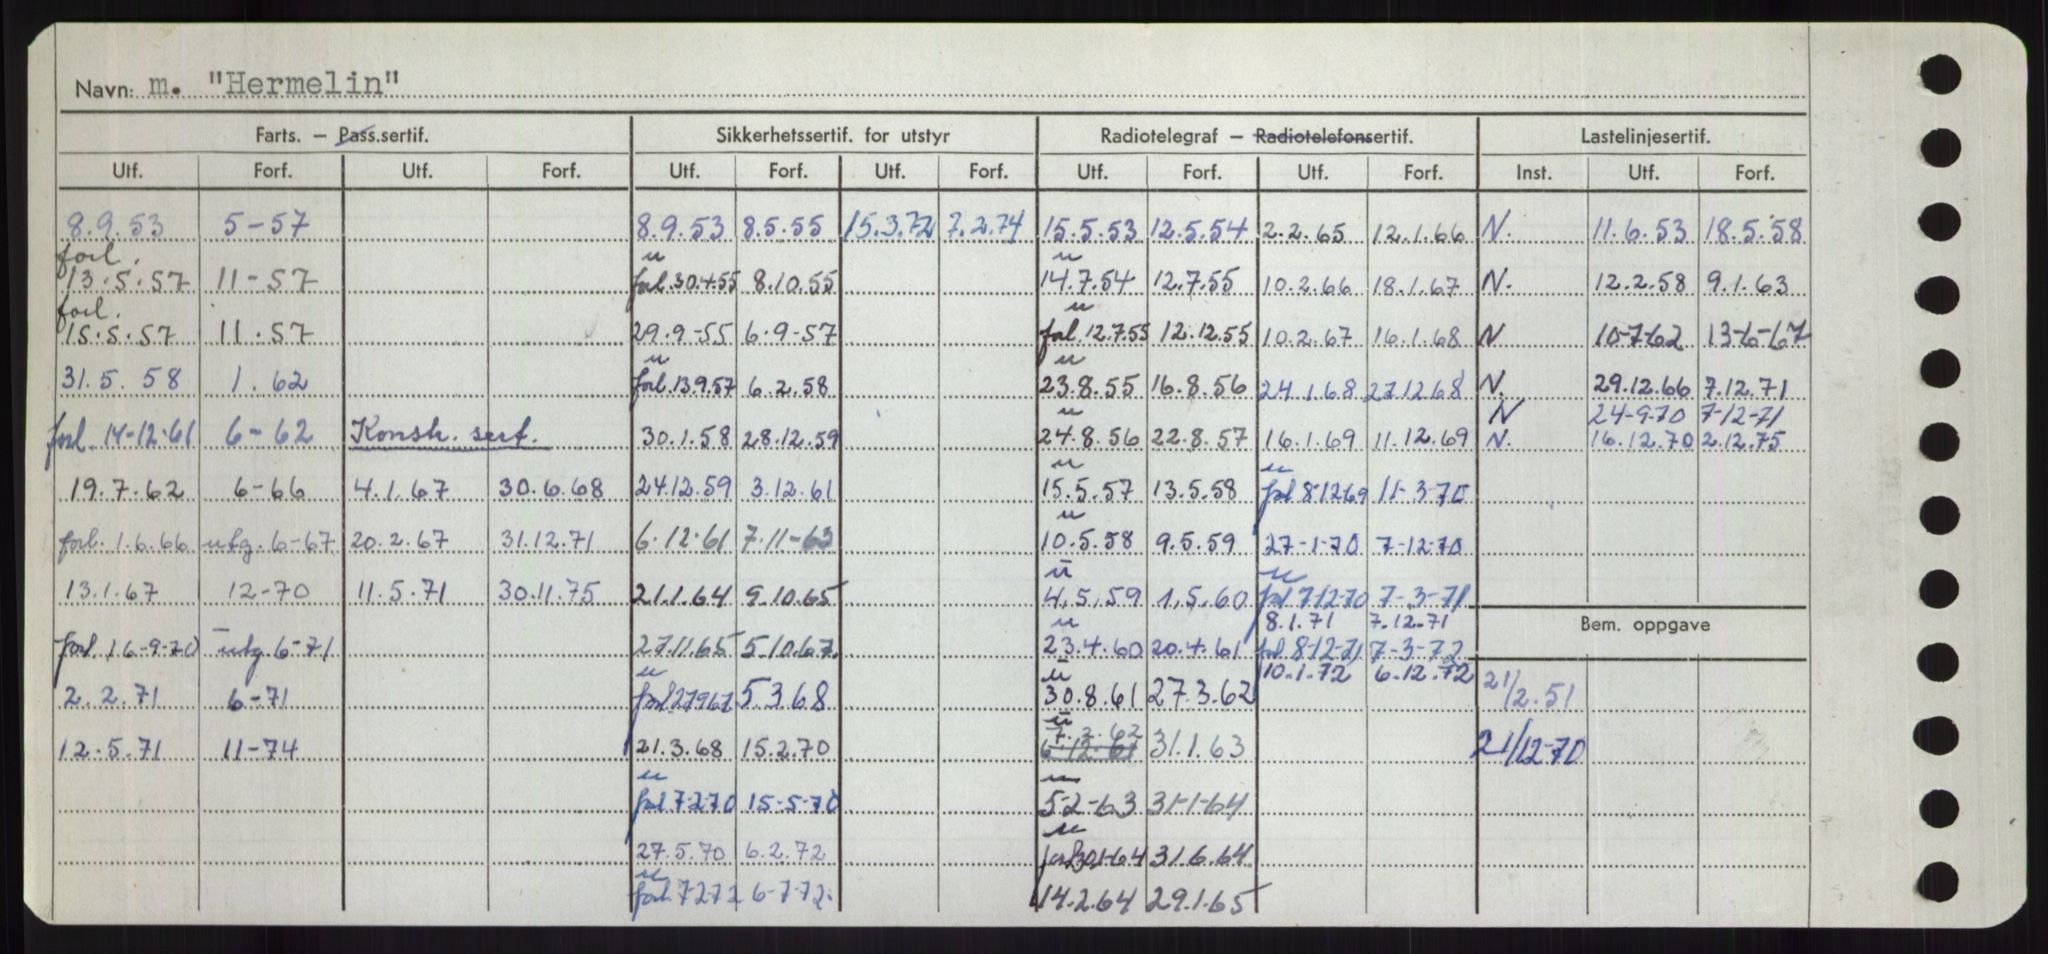 Navn: m. "Hermelin"
Farts. — Pass.sertif. Sikkerhetssertif. for utstyr Radiotelegraf — Radiotelefonsertif. Lastelinjesertif.
Utf. Forf. Utf. Forf. Utf. Forf. Utf. Forf. Utf. Forf. Utf. Forf. Inst. Utf. Forf.
8.9.53 5-57 8.9.53 8.5.55 15.3.72 7.2.74 15.5.53 12.5.54 2.2.65 12.1.66 N. 11.6.53 18.5.58
forl. u u
13.5.57 11-57 forl. 30.4.55 8.10.55 14.7.54 12.7.55 10.2.66 18.1.67 N. 12.2.58 9.1.63
forl. u
15.5.57 11.57 29.9-55 6.9-57 fol. 12.7.55 12.12.55 10.2.67 16.1.68 N 10-7-62 13-6-67
u u
31.5.58 1.62 forl. 13.9.57 6.2.58 23.8.55 16.8.56 24.1.68 27.12.68 N. 29.12.66 7.12.71
u N 24-9-70 7-12-71
forl. 14-12-61 6-62 Konstr. sert. 30.1.58 28.12.59 24.8.56 22.8.57 16.1.69 11.12.69 N. 16.12.70 2.12.75
u u
19.7.62 6-66 4.1.67 30.6.68 24.12.59 3.12.61 15.5.57 13.5.58 forl 8.12.69 11-3-70
u
forl. 1.6.66 utg. 6-67 20.2.67 31.12.71 6.12.61 7.11-63 10.5.58 9.5.59 27-1-70 7-12-70
u u
13.1.67 12-70 11.5.71 30.11.75 21.1.64 9.10.65 4.5.59 1.5.60 forl 7-12-70 7-3-71
u 8.1.71 7.12.71
Bem. oppgave
forl. 16-9-70 utg. 6-71 27.11.65 5.10.67. 23.4.60 20.4.61 forl 8-12-71 7-3-72
u u 10.1.72 6.12.72
2.2.71 6-71 forl. 27.9.67 5.3.68 30.8.61 27.3.62 21/2.51
u 7.2.62
12.5.71 11-74 21.3.68 15.2.70 6.12.61 31.1.63 21/12-70
u u
forl 7-2-70 15-5-70 5-2-63 31-1-64
u
27.5.70 6.2.72 forl 30.1-64 31.6.64
u
forl. 7-2-72 6-7-72. 14.2.64 29.1.65